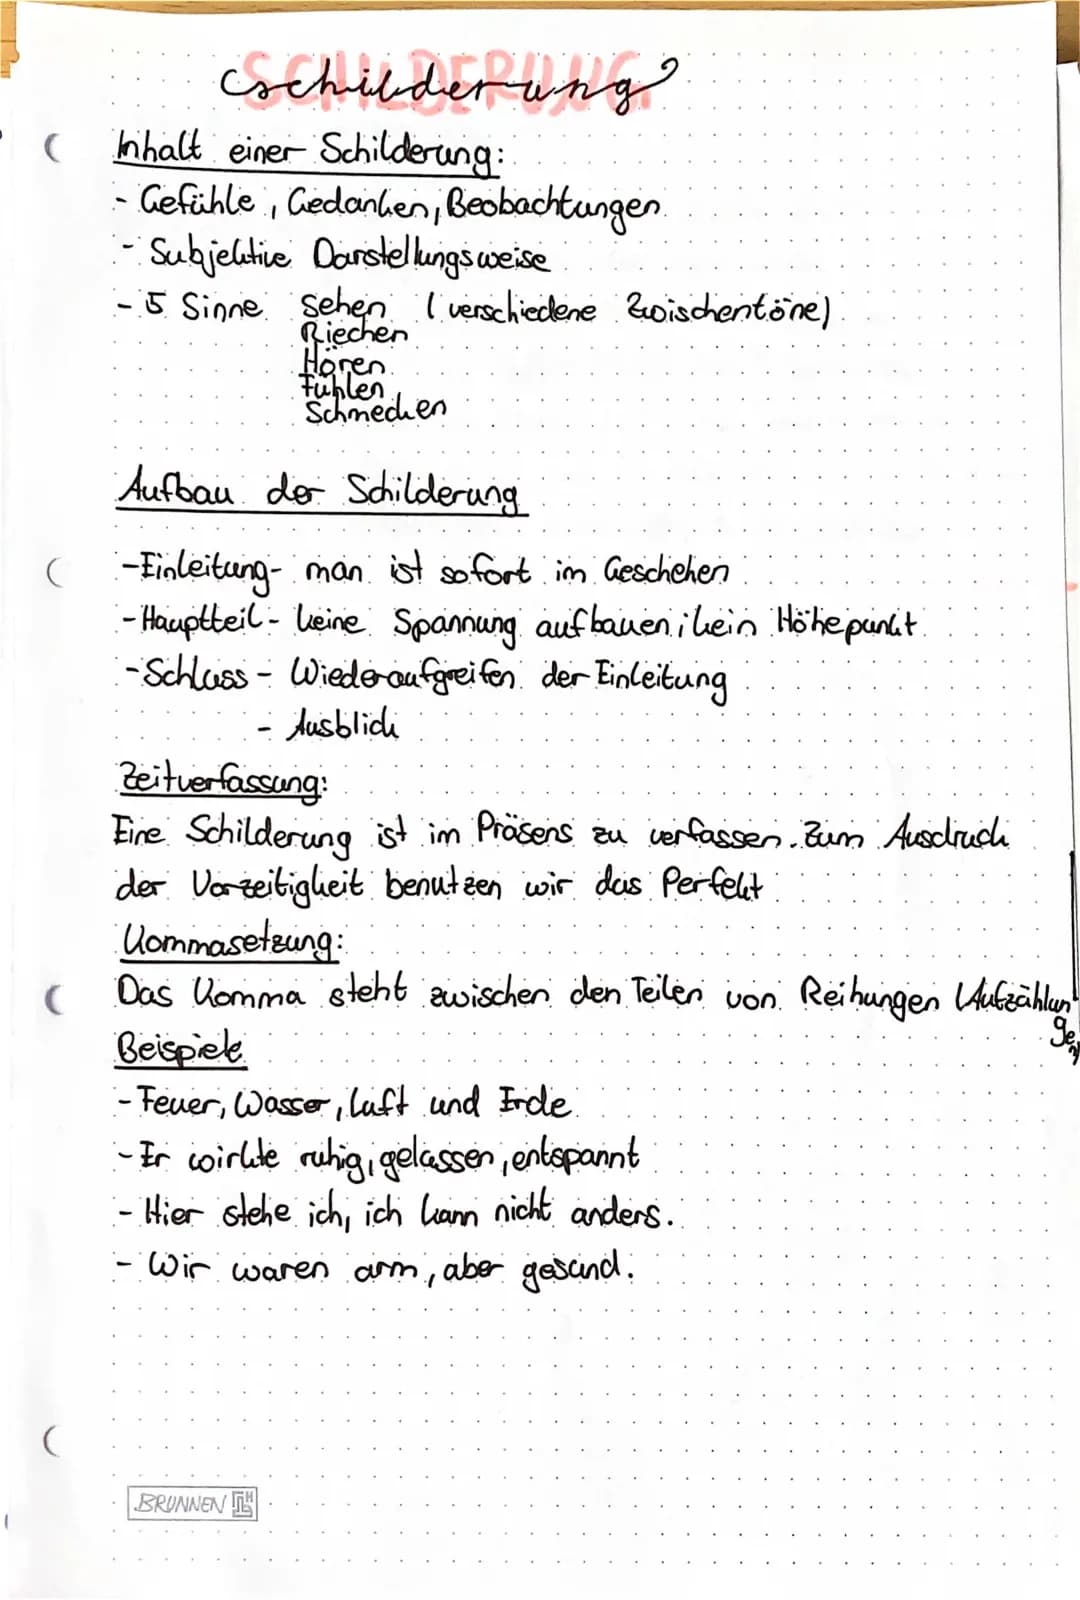 SCHILDERUNG
Schilderung
Inhalt einer Schilderung:
- Gefühle, Gedanken, Beobachtungen
- Subjektive Darstellungsweise
- 5 Sinne Sehen (verschiedene Zwischentöne)
Riechen
Hören
Fühlen
Schmecken
Aufbau der Schilderung
- Einleitung - man ist sofort im Geschehen
- Hauptteil - keine Spannung aufbauen; kein Höhepunkt
- Schluss - Wiederaufgreifen der Einleitung
- Ausblick
Zeitverfassung:
Eine Schilderung ist im Präsens zu verfassen. Zum Ausdruck
der Vorzeitigkeit benutzen wir das Perfekt
Kommasetzung:
Das Komma steht zwischen den Teilen von Reihungen (Aufzählun
gen)
Beispiele
- Feuer, Wasser, Luft und Erde
- Er wirkte ruhig, gelassen, entspannt
- Hier stehe ich, ich kann nicht anders.
- Wir waren arm, aber gesund.
BRUNNEN